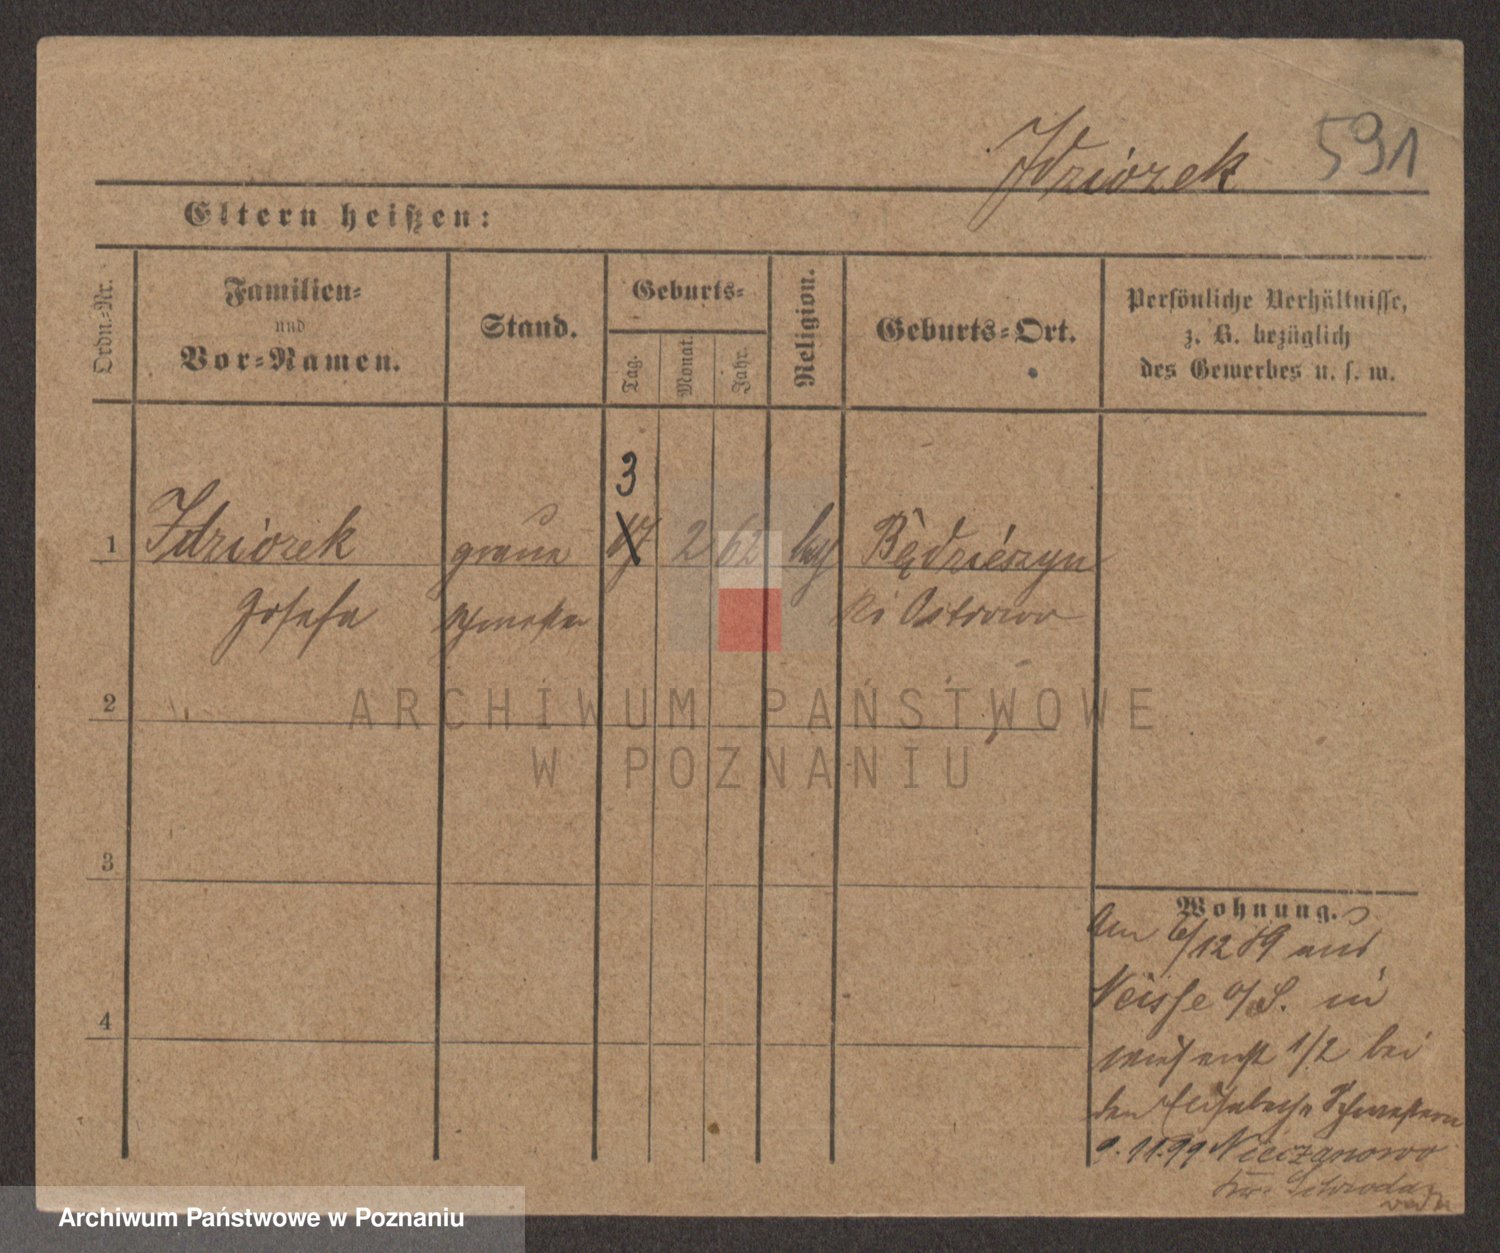 Idziorek 591
Eltern heißen:
Ordn.-Nr.
Familien-
und
Vor-Namen.
Stand.
Geburts-
Tag.
Monat.
Jahr.
Religion.
Geburts-Ort.
Persönliche Verhältnisse,
z. B. bezüglich
des Gewerbes u. s. w.
3
1 Idziorek graue 17 2 62 Będzieszyn
Josefa Schwester Ostrowo
2
3
4
Wohnung.
Am 6/12 89 aus
Neisse o/S. in
1/2 bei
den Elisabeth Schwestern
9.11.99 Nieczanowo
ARCHIWUM PAŃSTWOWE
W POZNANIU
Archiwum Państwowe w Poznaniu